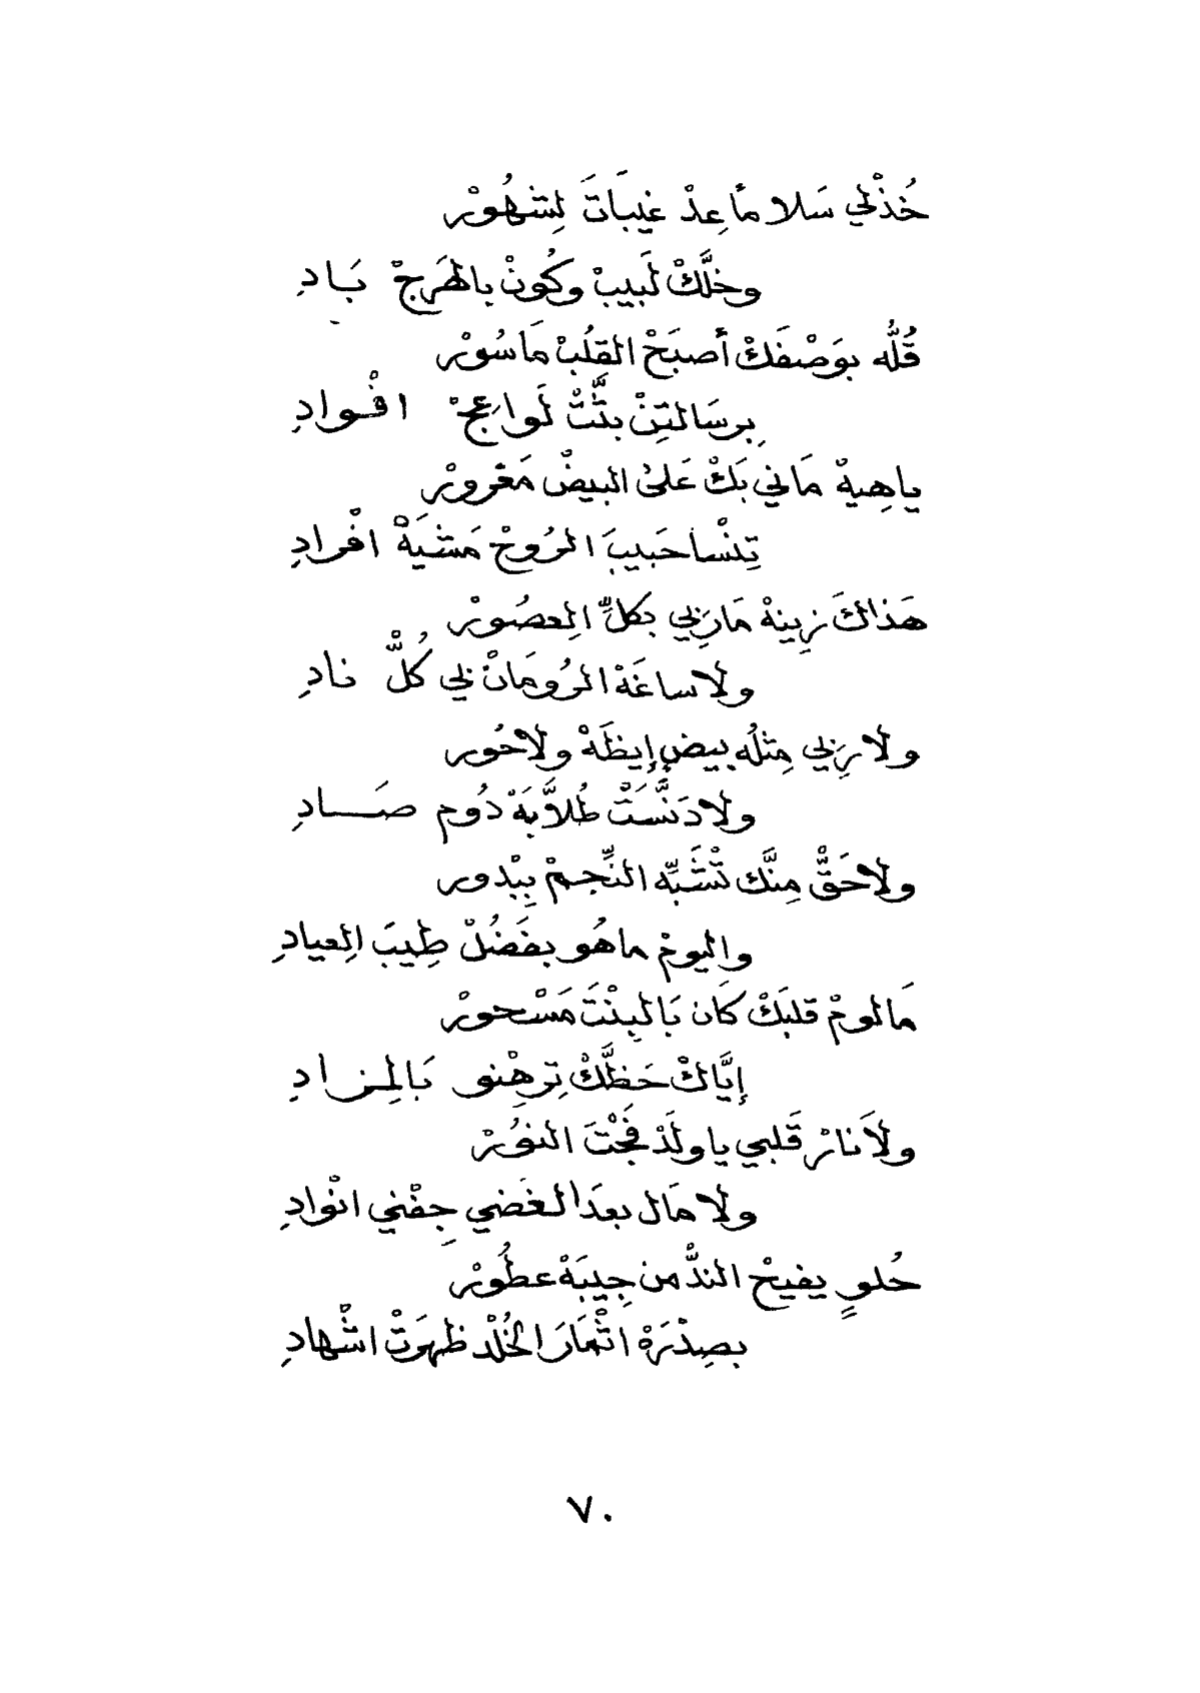 خُذْلي سَلاماً عِدْ غيبَاتَ لِشهُوْر
وخلَّكْ لَبيبْ وكُونْ بالهَرجْ بَادِ
قُلُّه بوَصْفَكْ أصبَحْ القلُبْ مَاسُوْر
بِرسَالتِنْ بثَّتْ لَواعِجْ افْوادِ
ياهِيهْ مَاني بَكْ عَلىْ البيضْ مَغرورْ
تِنْسا حَبيبَ الروُحْ مَشيَةْ افْرادِ
هَذاكَ زِينهْ مَارِبي بكلِّ العصُورْ
ولا ساغَةْ الرُومَانْ لي كُلَّ نادِ
ولا رِبي مِثلُه بيضٍ إيظَهْ ولا حُور
ولا دَنَّسَتْ طُلاَّبَهْ دُوم صَـادِ
ولا حَقْ مِنَّك تْشَبِّه النِّجمْ بِبْدور
واليومْ ماهُو بفَضُلْ طِيبَ العيادِ
مَالومْ قلبَكْ كَان بَالبِنْتَ مَسْحورْ
إيَّاكْ حَظَّكْ تِرهِْنو بَالمِزادِ
ولاَ نارْ قَلبي ياولَدْ فجْتَ النوُرْ
ولا مَال بعدَ الغَضي جِفْني انْوادِ
حُلوٍ يفيحْ الندْ من جِيبَهْ عطُورْ
بصِدْرَهْ اثْمَارَ الخُلْد ظهرَتْ اشْهادِ
٧٠